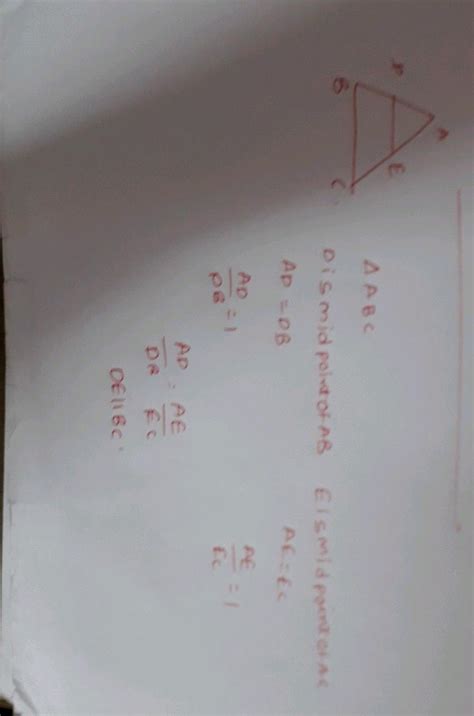 A
D
E
B
C
Δ ABC
D is midpoint of AB E is midpoint of AC
AD = DB AE = EC
AD/DB = 1 AE/EC = 1
AD/DB = AE/EC
DE || BC.